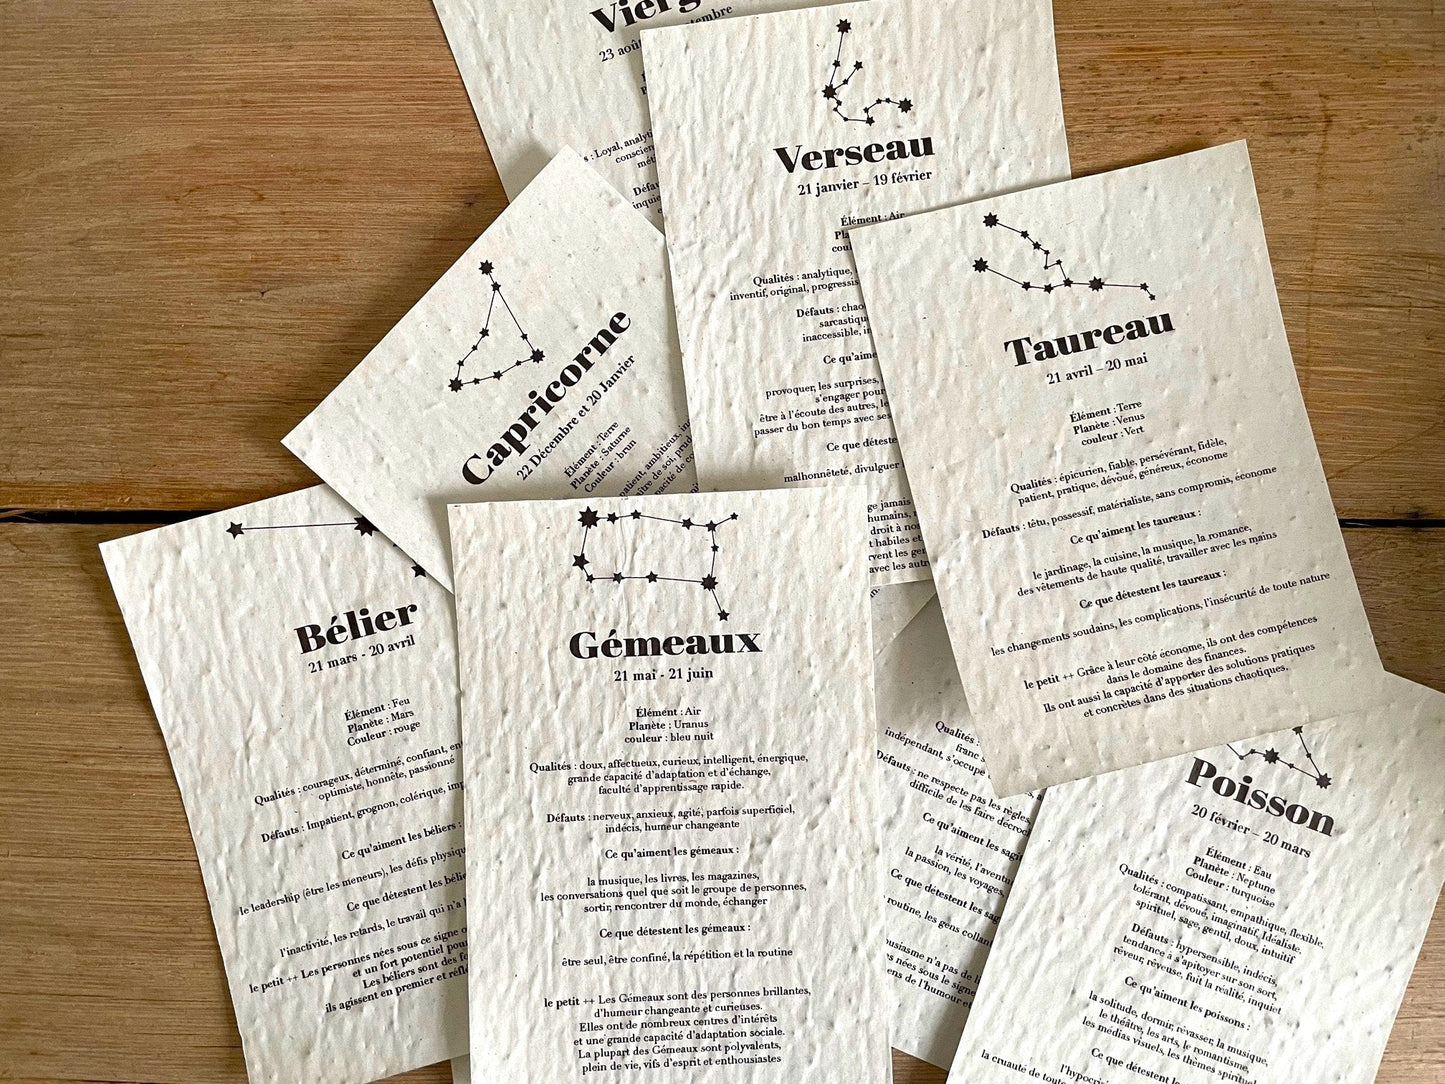 Vierg
23 août
septembre
: Loyal, analyti
conscien
méti
Défau
inquie
Verseau
21 janvier – 19 février
Élément : Air
Pla
cou
Qualités : analytique,
inventif, original, progressis
Défauts : chao
sarcastiqu
inaccessible, in
Ce qu'aime
provoquer, les surprises,
s'engager pour
être à l'écoute des autres, le
passer du bon temps avec ses
Ce que détest
malhonnêteté, divulguer
ge jamais
humains,
droit à nos
t habiles et
rvent les gen
avec les autre
Taureau
21 avril – 20 mai
Élément : Terre
Planète : Venus
couleur : Vert
Qualités : épicurien, fiable, persévérant, fidèle,
patient, pratique, dévoué, généreux, économe
Défauts : têtu, possessif, matérialiste, sans compromis, économe
Ce qu'aiment les taureaux :
le jardinage, la cuisine, la musique, la romance,
des vêtements de haute qualité, travailler avec les mains
Ce que détestent les taureaux :
les changements soudains, les complications, l'insécurité de toute nature
le petit ++ Grâce à leur côté économe, ils ont des compétences
dans le domaine des finances.
Ils ont aussi la capacité d'apporter des solutions pratiques
et concrètes dans des situations chaotiques.
Capricorne
22 Décembre et 20 Janvier
Élément : Terre
Planète : Saturne
Couleur : brun
patient, ambitieux, in
ître de soi, prud
pacité de co
Bélier
21 mars - 20 avril
Élément : Feu
Planète : Mars
Couleur : rouge
Qualités : courageux, déterminé, confiant, en
optimiste, honnête, passionné
Défauts : Impatient, grognon, colérique, imp
Ce qu'aiment les béliers :
le leadership (être les meneurs), les défis physiqu
Ce que détestent les bélie
l'inactivité, les retards, le travail qui n'a
le petit ++ Les personnes nées sous ce signe o
et un fort potentiel pour
Les béliers sont des fo
ils agissent en premier et réflé
Gémeaux
21 mai - 21 juin
Élément : Air
Planète : Uranus
couleur : bleu nuit
Qualités : doux, affectueux, curieux, intelligent, énergique,
grande capacité d'adaptation et d'échange,
faculté d'apprentissage rapide.
Défauts : nerveux, anxieux, agité, parfois superficiel,
indécis, humeur changeante
Ce qu'aiment les gémeaux :
la musique, les livres, les magazines,
les conversations quel que soit le groupe de personnes,
sortir, rencontrer du monde, échanger
Ce que détestent les gémeaux :
être seul, être confiné, la répétition et la routine
le petit ++ Les Gémeaux sont des personnes brillantes,
d'humeur changeante et curieuses.
Elles ont de nombreux centres d'intérêts
et une grande capacité d'adaptation sociale.
La plupart des Gémeaux sont polyvalents,
plein de vie, vifs d'esprit et enthousiastes
Qualités :
franc
indépendant, s'occupe
Défauts : ne respecte pas les règles,
difficile de les faire décroc
Ce qu'aiment les sagi
la vérité, l'aventu
la passion, les voyages,
Ce que détestent les sag
routine, les gens collant
ousiasme n'a pas de l
s nées sous le signe
ens de l'humour et
Poisson
20 février – 20 mars
Élément : Eau
Planète : Neptune
Couleur : turquoise
Qualités : compatissant, empathique, flexible.
tolérant, dévoué, imaginatif, Idéaliste.
spirituel, sage, gentil, doux, intuitif
Défauts : hypersensible, indécis,
tendance à s'apitoyer sur son sort,
rêveur, rêveuse, fuit la réalité, inquiet
Ce qu'aiment les poissons :
la solitude, dormir, rêvasser, la musique,
le théâtre, les arts, le romantisme,
les médias visuels, les thèmes spirituel
Ce que détestent le
l'hypocri
la cruauté de toute